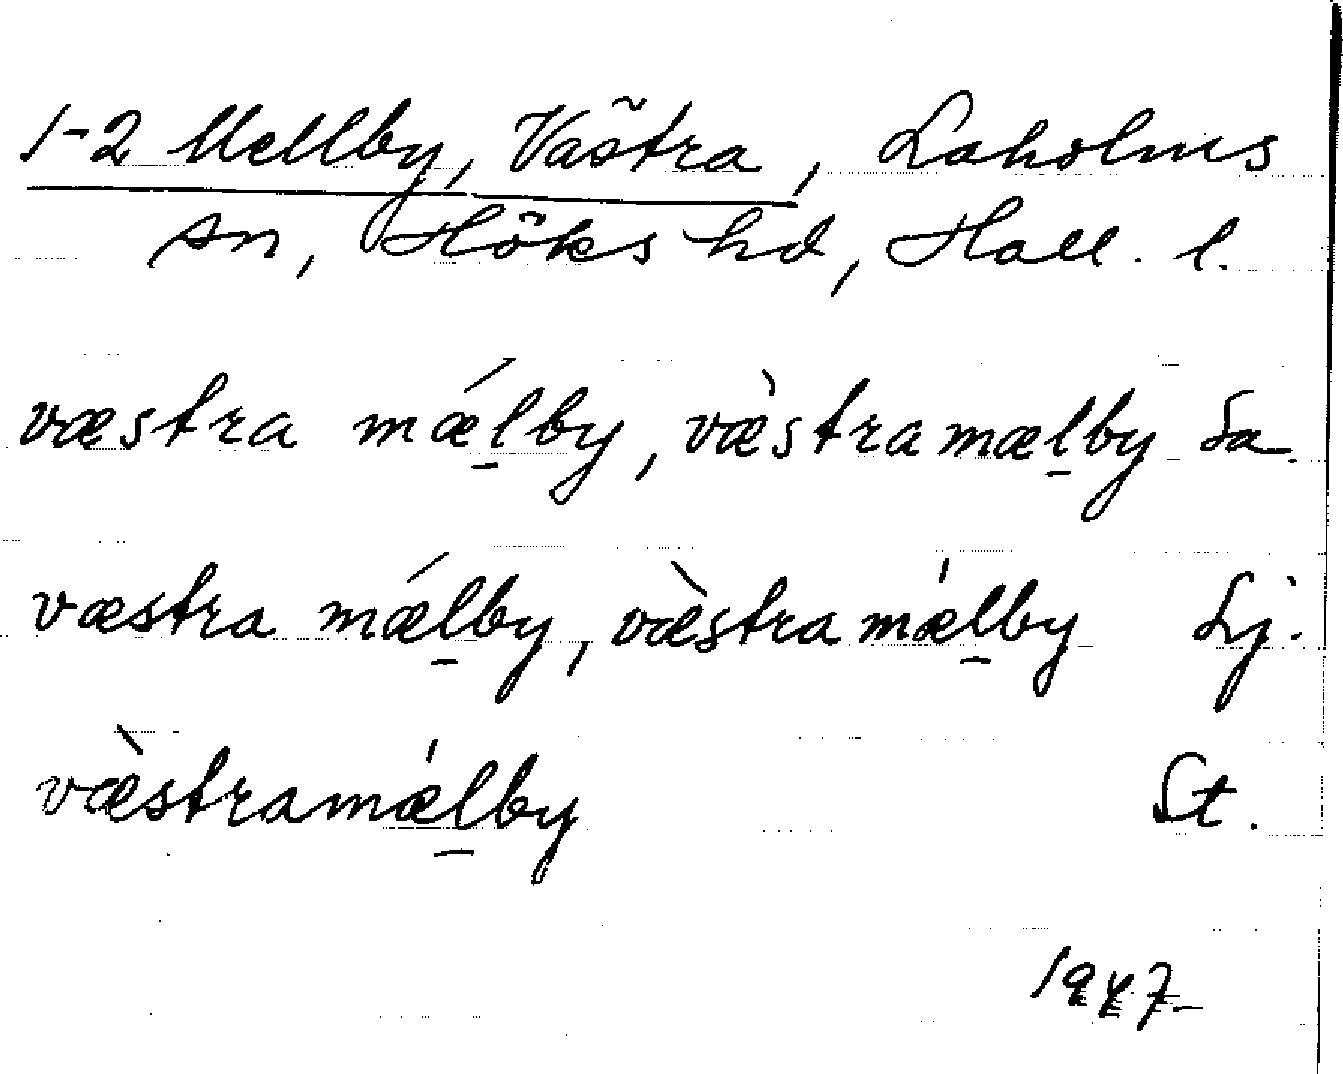 1-2 Mellby, Västra, Laholms
sn, Höks hd, Hall. l.
væstra mǽl̠by, væ̀stramæl̠by Sa
væstra mǽl̠by, væ̀stramæ̍l̠by Lj.
væ̀stramæ̍l̠by St.
1947